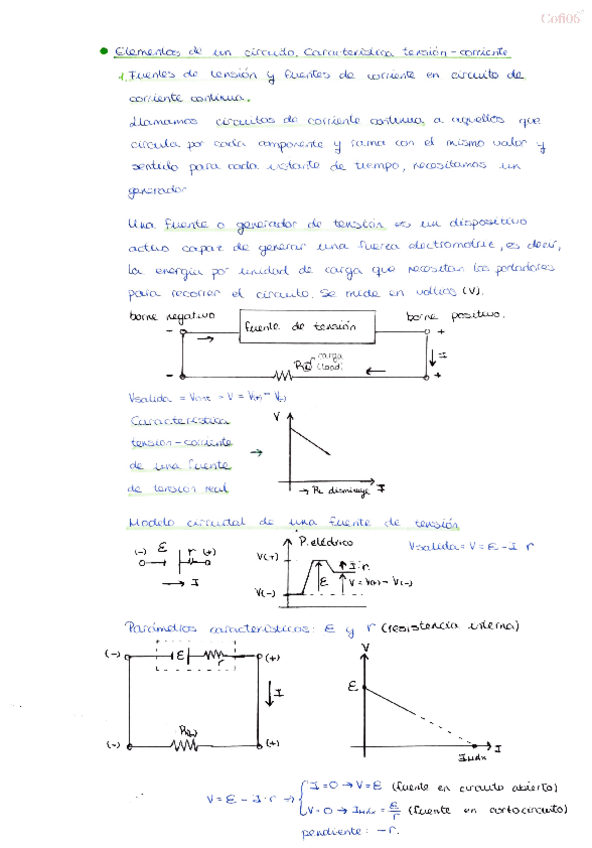 Cofi06
● Elementos de un circuito. Característica tensión-corriente
1. Fuentes de tensión y fuentes de corriente en circuito de
corriente continua.
Llamamos circuitos de corriente continua a aquellos que
circula por cada componente y rama con el mismo valor y
sentido para cada instante de tiempo, necesitamos un
generador
Una fuente o generador de tensión es un dispositivo
activo capaz de generar una fuerza electromotriz, es decir,
la energía por unidad de carga que necesitan los portadores
para recorrer el circuito. Se mide en voltios (V).
borne negativo
fuente de tensión
borne positivo.
- +
I
carga
(load)
- +
Vsalida = Vout = V = V(+) - V(-)
Característica
tensión-corriente
de una fuente
de tensión real
→
V
→ RL disminuye I
Modelo circuital de una fuente de tensión
(-) ε r (+)
→ I
P. eléctrico
V(+)
V(-)
ε
I·r
V = V(+) - V(-)
Vsalida = V = ε - I r
Parámetros característicos: ε y r (resistencia interna)
(-) ε r (+)
I
(-) (+)
V
ε
Imáx I
V = ε - I·r →
I=0 → V=ε (fuente en circuito abierto)
V=0 → Imáx = ε/r (fuente en cortocircuito)
pendiente: -r.